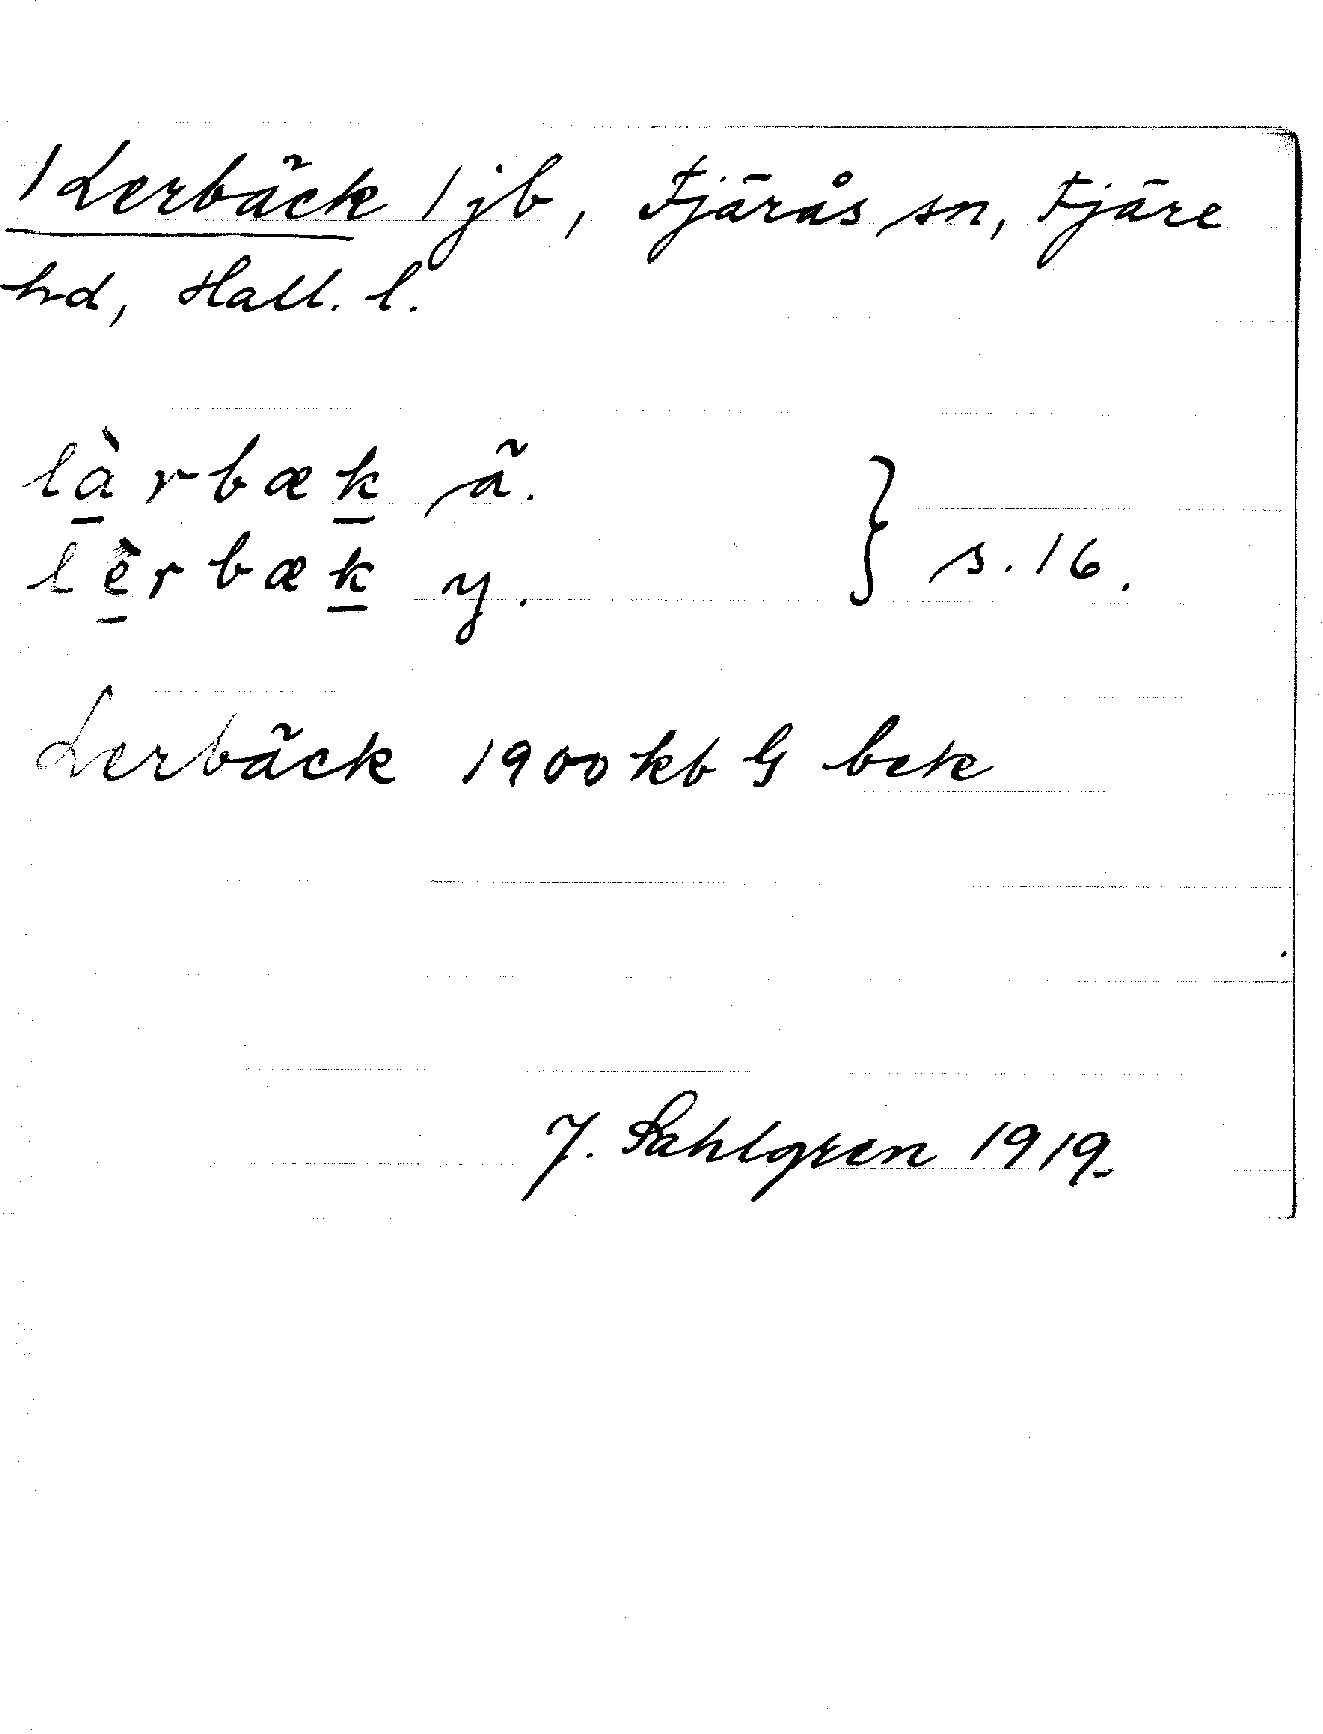 1 Lerbäck 1 jb, Fjärås sn, Fjäre
hd, Hall. l.
là̱rbæḵ ä.
lè̱rbæḵ y. } s. 16.
Lerbäck 1900 kb G bek
J. Sahlgren 1919.